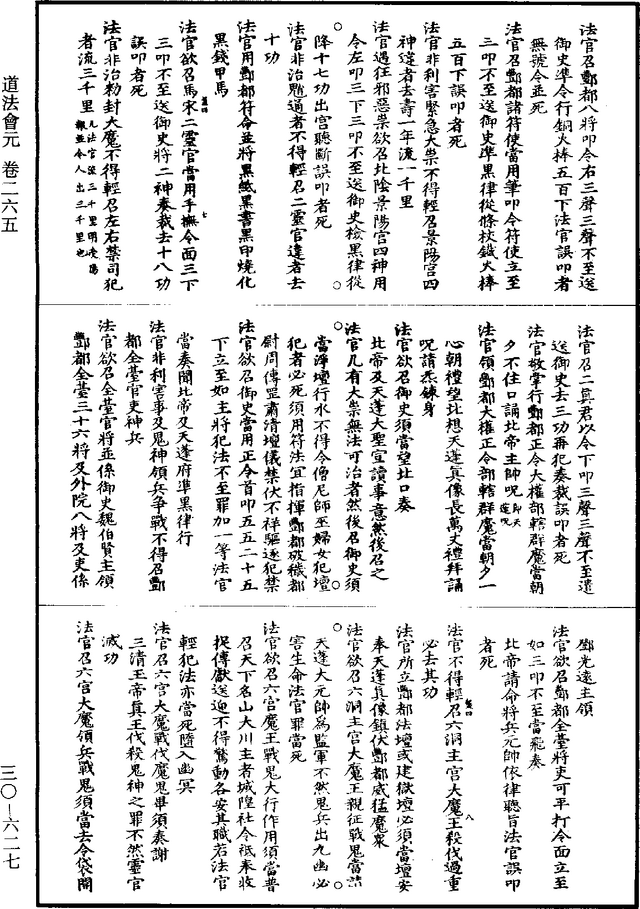 法官召酆都八將叩令右三聲三聲不至送
御史準令行銅火棒五百下法官誤叩者
無號令並死
法官召酆都諸符使當用筆叩令符使立至
三叩不至送御史準黑律從條杖鐵火棒
五百下誤叩者死
法官非利害緊急大祟不得輕召景陽宮四
神違者去壽一年流一千里
法官遇狂邪惡祟欲召北陰景陽宮四神用
令左叩三下三叩不至送御史檢黑律從
降十七功出宮聽斷誤叩者死
法官非治魈通者不得輕召二靈官違者去
十功
法官用酆都符命並將黑紙黑書黑印燒化
黑錢甲馬
法官欲召馬宋二靈官當用手撫令面三下
三叩不至送御史將二神奏裁去十八功
誤叩者死
法官非治勑封大魔不得輕召左右禁司犯
者流三千里
道法會元 卷二六五
法官召二真君以令下叩三聲三聲不至遣
送御史去三功再犯奏裁誤叩者死
法官敬掌行酆都正令大權部轄群魔當朝
夕不住口誦北帝主帥呪
法官領酆都大權正令部轄群魔當朝夕一
心朝禮望北想天蓬真像長萬丈禮拜誦
呪請炁鍊身
法官欲召御史須當望北口奏
北帝及天蓬大聖宣讀事意然後召之
法官凡有大祟無法可治者然後召御史須
當淨壇行水不得令僧尼師巫婦女犯壇
犯者必死須用符法宜指揮酆都破穢都
尉周傳罡肅清壇儀禁伏不祥驅逐犯禁
法官欲召御史當用正令首叩五五二十五
下立至如主將犯法不至罪加一等法官
當奏聞北帝及天蓬府準黑律行
法官非利害事及鬼神領兵爭戰不得召酆
都全臺官吏神兵
法官欲召全臺官將並係御史魏伯賢主領
酆都全臺三十六將及外院八將及吏係
鄧光遠主領
法官欲召酆都全臺將吏可平打令面立至
如三叩不至當飛奏
北帝請命將兵元帥依律聽旨法官誤叩
者死
法官不得輕召六洞主宮大魔王殺伐過重
必去其功
法官所立酆都法壇或建獄壇必須當壇安
奉天蓬真像鎮伏酆都威猛魔衆
法官欲召六洞主宮大魔王親征戰鬼當請
天蓬大元帥為監軍不然鬼兵出九幽必
害生命法官罪當死
法官欲召六宮魔王戰鬼大行作用須當普
召天下名山大川主者城隍社令祗奉收
捉傳獻送迎不得驚動各安其職若法官
輕犯法亦當死隨入幽冥
法官召六宮大魔戰伐魔鬼畢須奏謝
三清玉帝真王伐殺鬼神之罪不然靈官
減功
法官召六宮大魔領兵戰鬼須當去令袋開
三〇—六二七